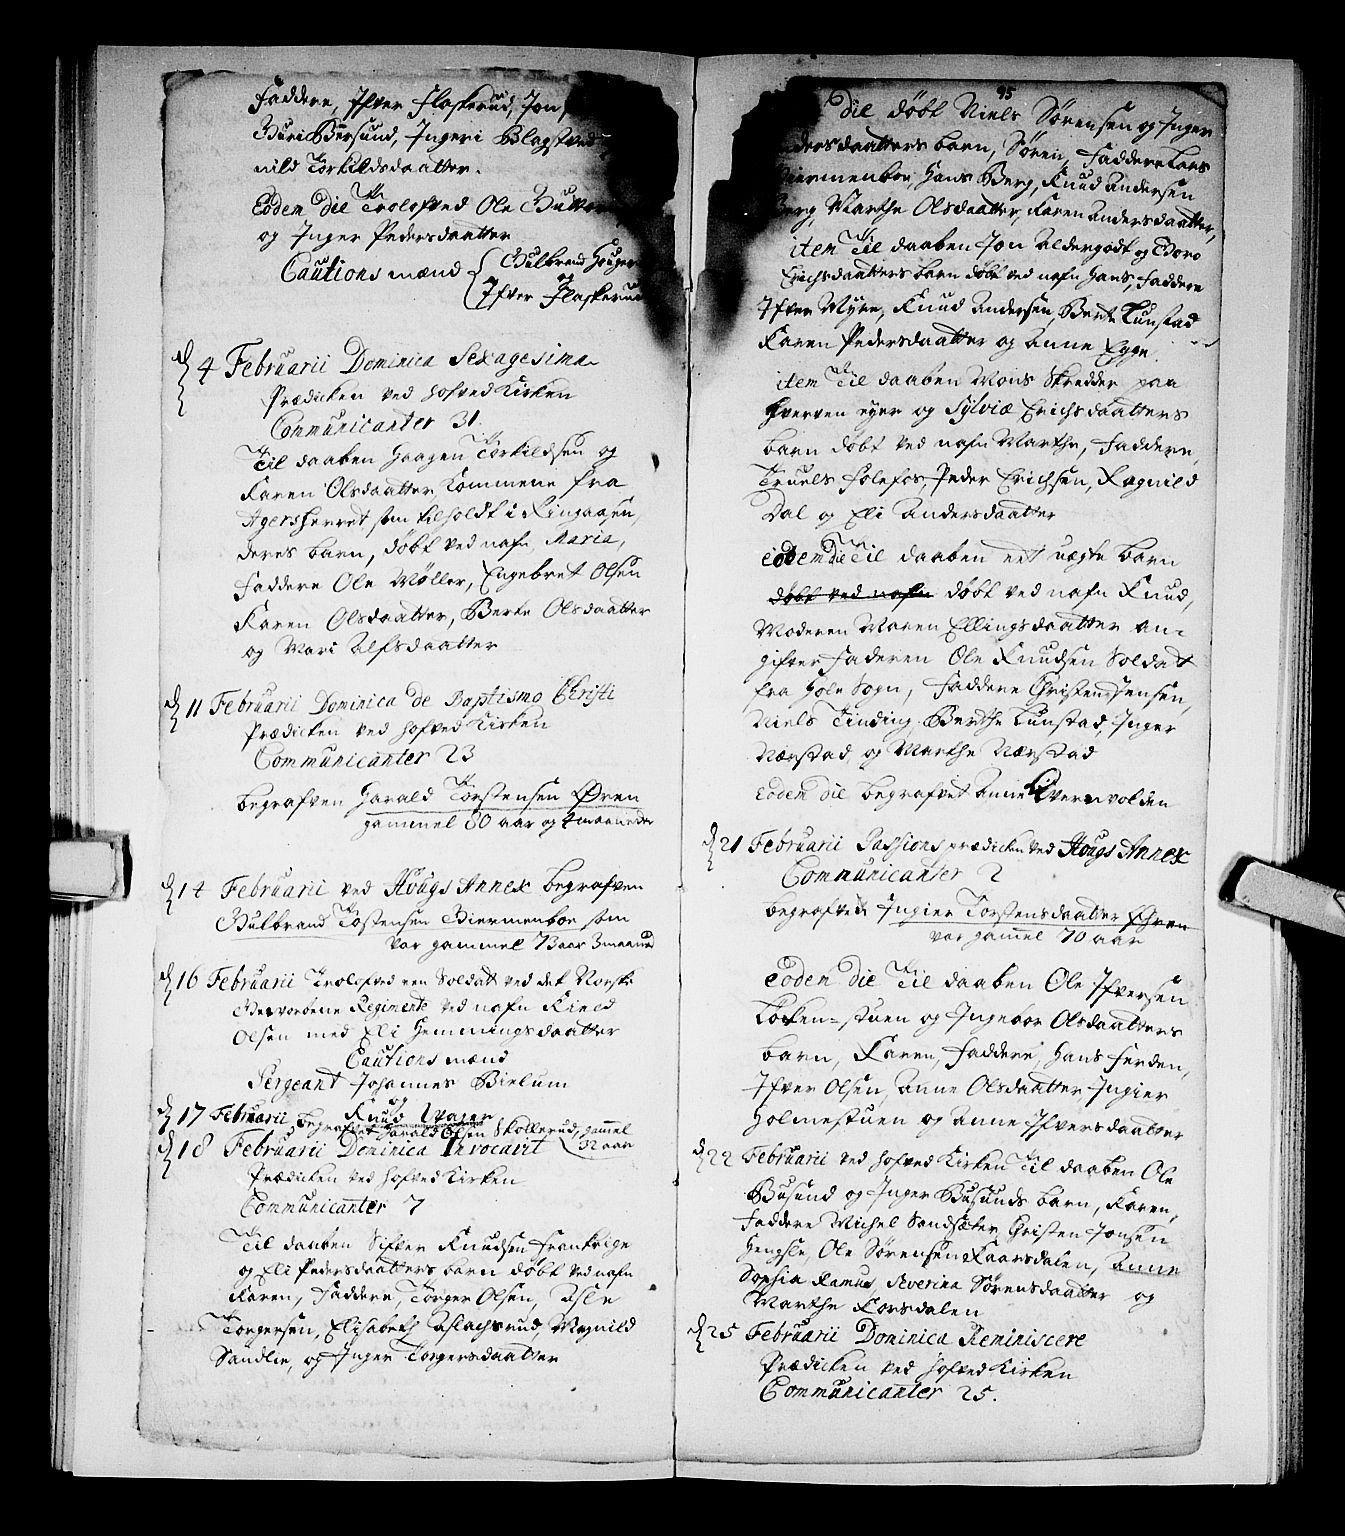 Faddere, Ifver Flaskerud, Jon
Guri Børsund, Ingeri Blagstved
nild Torkildsdaatter.
Eodem die Trolofved Ole
og Inger Pedersdaatter
Cautions mænd { Gulbrand Houger
og
Ifver Flaskerud
d 4 Februarii Dominica Sexagesima
Prædicken ved Hofved Kirken
Communicanter 31.
Til daaben Haagen Torkildsen og
Karen Olsdaatter, kommene fra
Agersherret som tilholdt i Ringaasen,
deres barn, døbt ved nafn, Maria,
Faddere Ole Møller, Engebret Olsen
Karen Olsdaatter, Berte Olsdaatter
og Mari Alfsdaatter
d 11 Februarii Dominica de Baptismo Christi
Prædicken ved Hofved Kirken
Communicanter 23
begrafven Harald Torstensen Øren
gammel 80 aar og 4 maaneder
d 14 Februarii ved Hougs Annex begrafven
Gulbrand Tostensen Biermenboe som
var gammel 73 aar 3 maaned
d 16 Februarii Trolofved een Soldatt ved det Norske
Gevorbene Regimente ved nafn Kield
Olsen med Eli Hemmingsdaatter
Cautions mænd
Sergeant Johannes Bielum
og
Knud Wager
d 17 Februarii begrafvet Harald Olsen Skollerud, gammel
32 aar
d 18 Februarii Dominica Invocavit
Prædicken ved Hofved Kirken
Communicanter 7
Til daaben Sifver Knudsen Frankrige
og Eli Pedersdaatters barn døbt ved nafn
Karen, Faddere, Torger Olsen, Asle
Torgersen, Elisabeth Aslachsrud, Magnild
Sandlie, og Inger Torgersdaatter
95
die døbt Niels Sørensen og Inger
dersdaatters barn, Søren, Faddere Lars
iermenboe, Hans Berg, Knud Andersen
Berg, Marthe Olsdaatter, Karen Andersdaatter,
item Til daaben Jon Aldergodt og Goro
Erichsdaatters barn døbt ved nafn Hans, Faddere
Ifver Myre, Knud Andersen, Berte Tunstad
Karen Pedersdaatter og Anne Egge.
item Til daaben Mons Skredder paa
Hverven eyer og Sylviæ Erichsdaatters
barn døbt ved nafn Marthe, Faddere,
Truels Folefos, Peder Erichsen, Ragnild
Dal og Eli Andersdaatter
eodem die Til daaben eet uægte barn
døbt ved nafn døbt ved nafn Knud,
Moderen Maren Ellingsdaatter an-
gifver Faderen Ole Knudsen Soldat
fra Hole Sogn, Faddere Christen Jensen,
Niels Tinding Berthe Tunstad, Inger
Nærstad, og Marthe Nærstad
Eodem die begrafvet Anne Qvernvolden
d 21 Februarii Passions prædicken ved Hougs Annex
Communicanter 2
begrafvet Ingier Torstensdaatter Øren
var gammel 70 aar
Eodem die Til daaben Ole Ifversen
Løken-stuen og Ingebor Olsdaatters
barn, Karen, Faddere, Hans Ferden,
Ifver Olsen, Anne Olsdaatter, Ingier
Holmestuen og Anne Ifversdaatter
d 22 Februarii ved Hofved Kirken Til daaben Ole
Busund og Inger Busunds barn, Karen,
Faddere Michel Sandsæter, Christen Jonsen
Hengsle, Ole Sørensen Kaarsdalen, Anne
Sophia Ramus, Severina Sørensdaatter og
Marthe Korsdalen
d 25 Februarii Dominica Reminiscere
Prædicken ved Hofved Kirken
Communicanter 25.